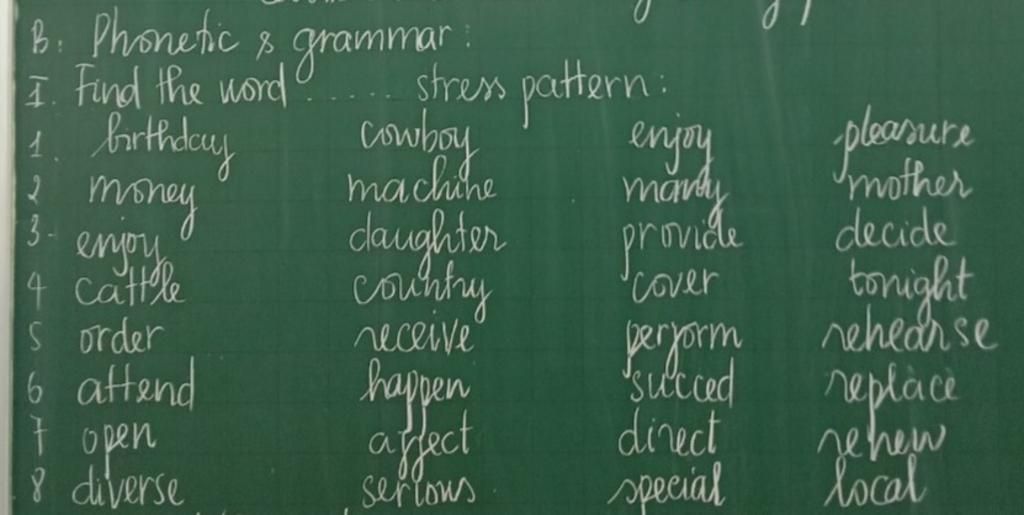 B: Phonetic & grammar:
I. Find the word ...... stress pattern:
1. birthday cowboy enjoy pleasure
2 money machine many mother
3- enjoy daughter provide decide
4 cattle country cover tonight
5 order receive perform rehearse
6 attend happen succed replace
7 open affect direct renew
8 diverse serious special local